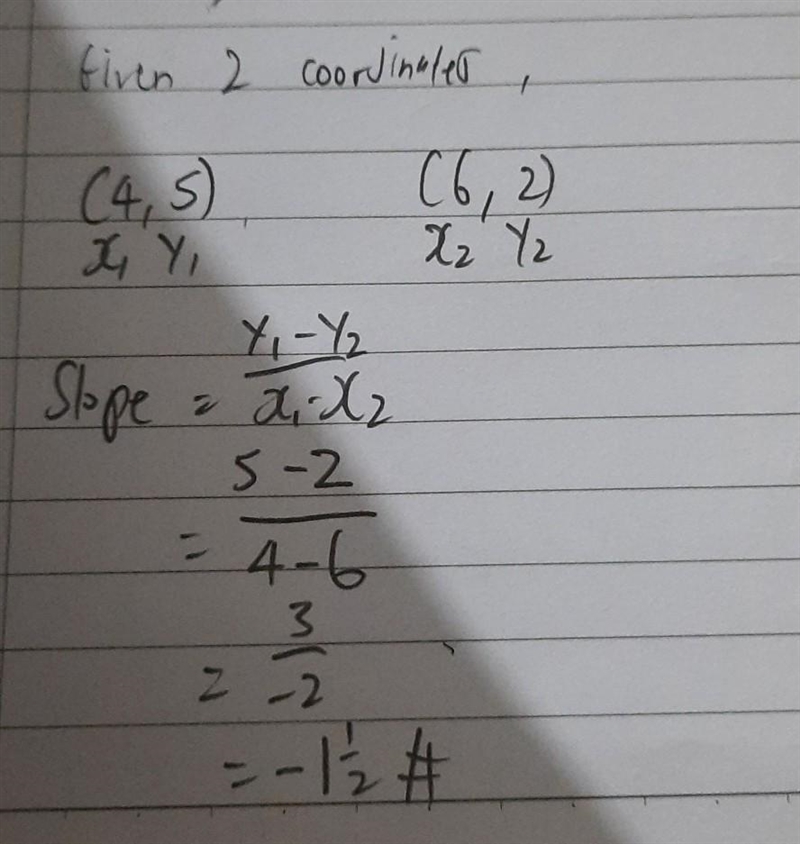 Given 2 coordinates,
(4, 5) (6, 2)
x₁ y₁ x₂ y₂
Slope = y₁ - y₂ / x₁ - x₂
= 5 - 2 / 4 - 6
= 3 / -2
= -1 1/2 #